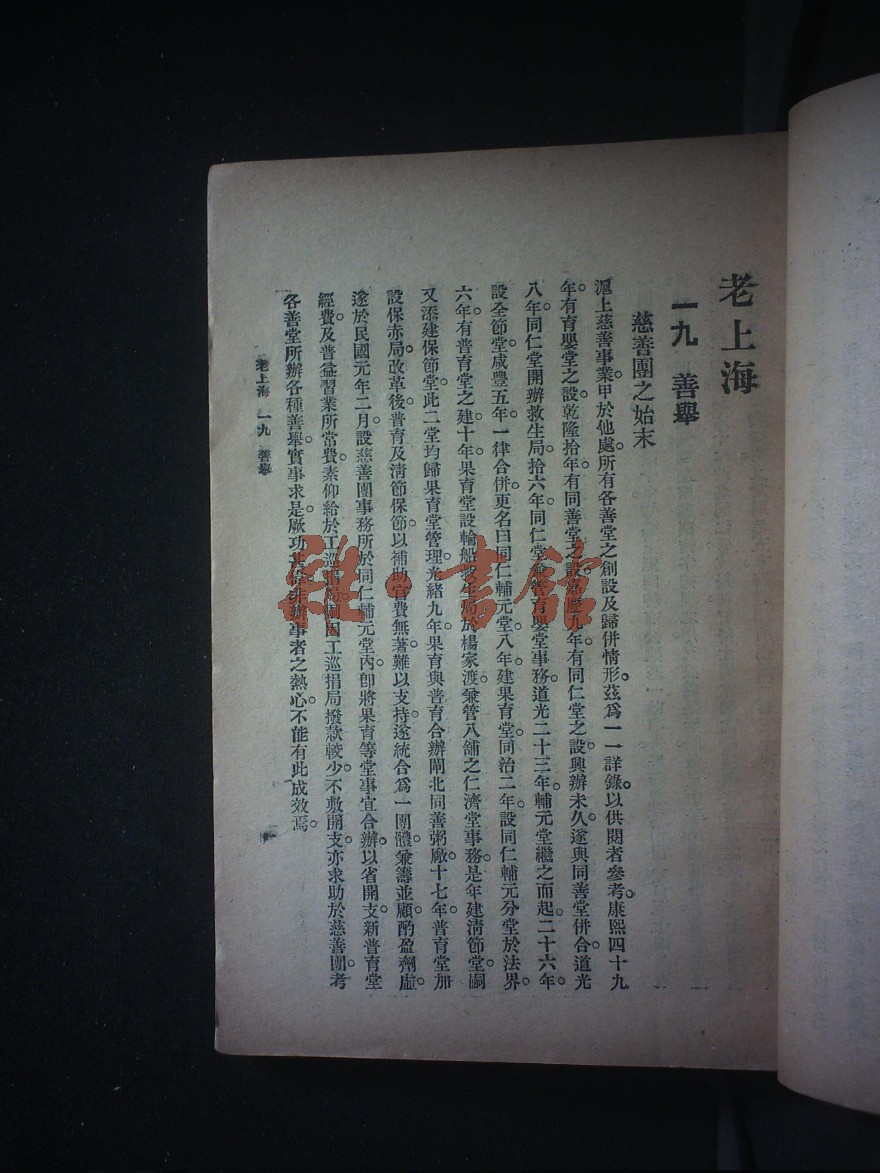 老上海
一九 善舉
慈善團之始末
滬上慈善事業甲於他處。所有各善堂之創設及歸併情形。茲爲一一詳錄。以供閱者參考。康熙四十九
年。有育嬰堂之設。乾隆拾年。有同善堂之設。嘉慶九年。有同仁堂之設。興辦未久。遂與同善堂併合。道光
八年。同仁堂開辦救生局。拾六年。同仁堂兼管育嬰堂事務。道光二十三年。輔元堂繼之而起。二十六年。
設全節堂。咸豐五年。一律合併。更名曰同仁輔元堂。八年。建果育堂。同治二年。設同仁輔元分堂於法界。
六年。有普育堂之建。十年。果育堂設輪船救生局於楊家渡。兼管八舖之仁濟堂事務。是年建淸節堂。嗣
又添建保節堂。此二堂均歸果育堂管理。光緒九年。果育與普育合辦閘北同善粥廠。十七年。普育堂加
設保赤局。改革後。普育及淸節保節。以補助官費無著。難以支持。遂統合爲一團體。兼籌並顧。酌盈劑虛。
遂於民國元年二月。設慈善團事務所於同仁輔元堂內。卽將果育等堂事宜合辦。以省開支。新普育堂
經費。及普益習業所常費。素仰給於工巡捐局。嗣因工巡捐局撥款較少。不敷開支。亦求助於慈善團。考
各善堂所辦各種善舉。實事求是。厥功甚偉。非辦事者之熱心。不能有此成效焉。
老上海 一九 善舉